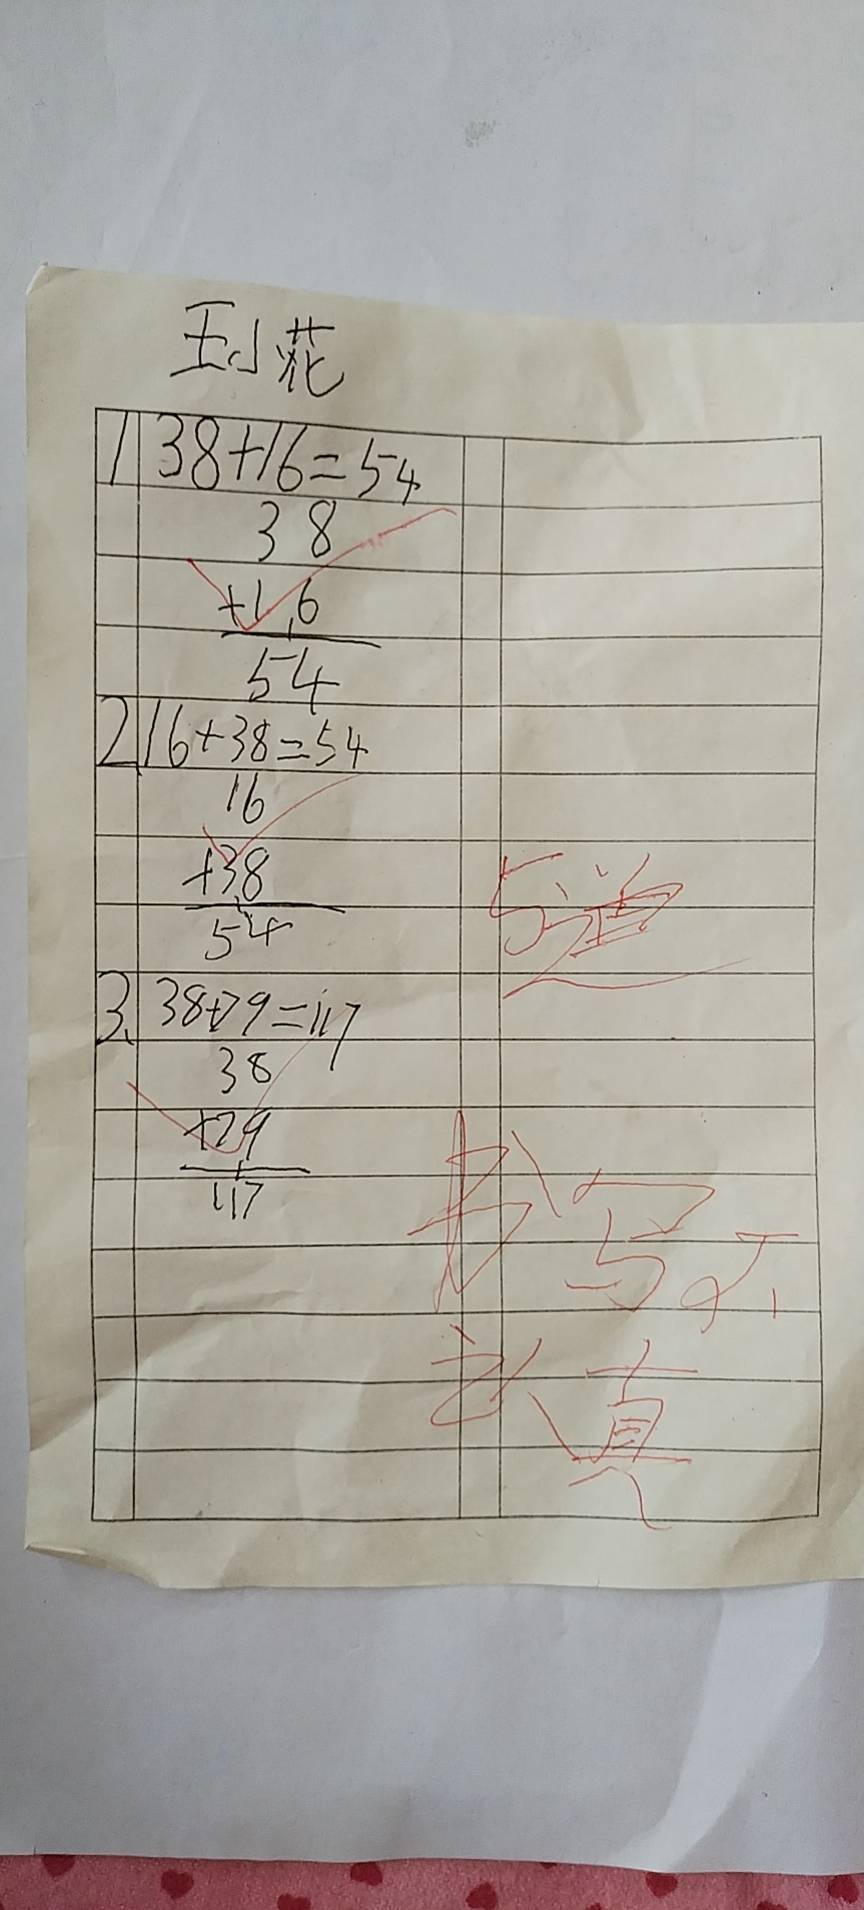 王小花
1 38+16=54
38
+16
54
2 16+38=54
16
+38
54
3、 38+79=117
38
+79
117
5道
书写不
认真